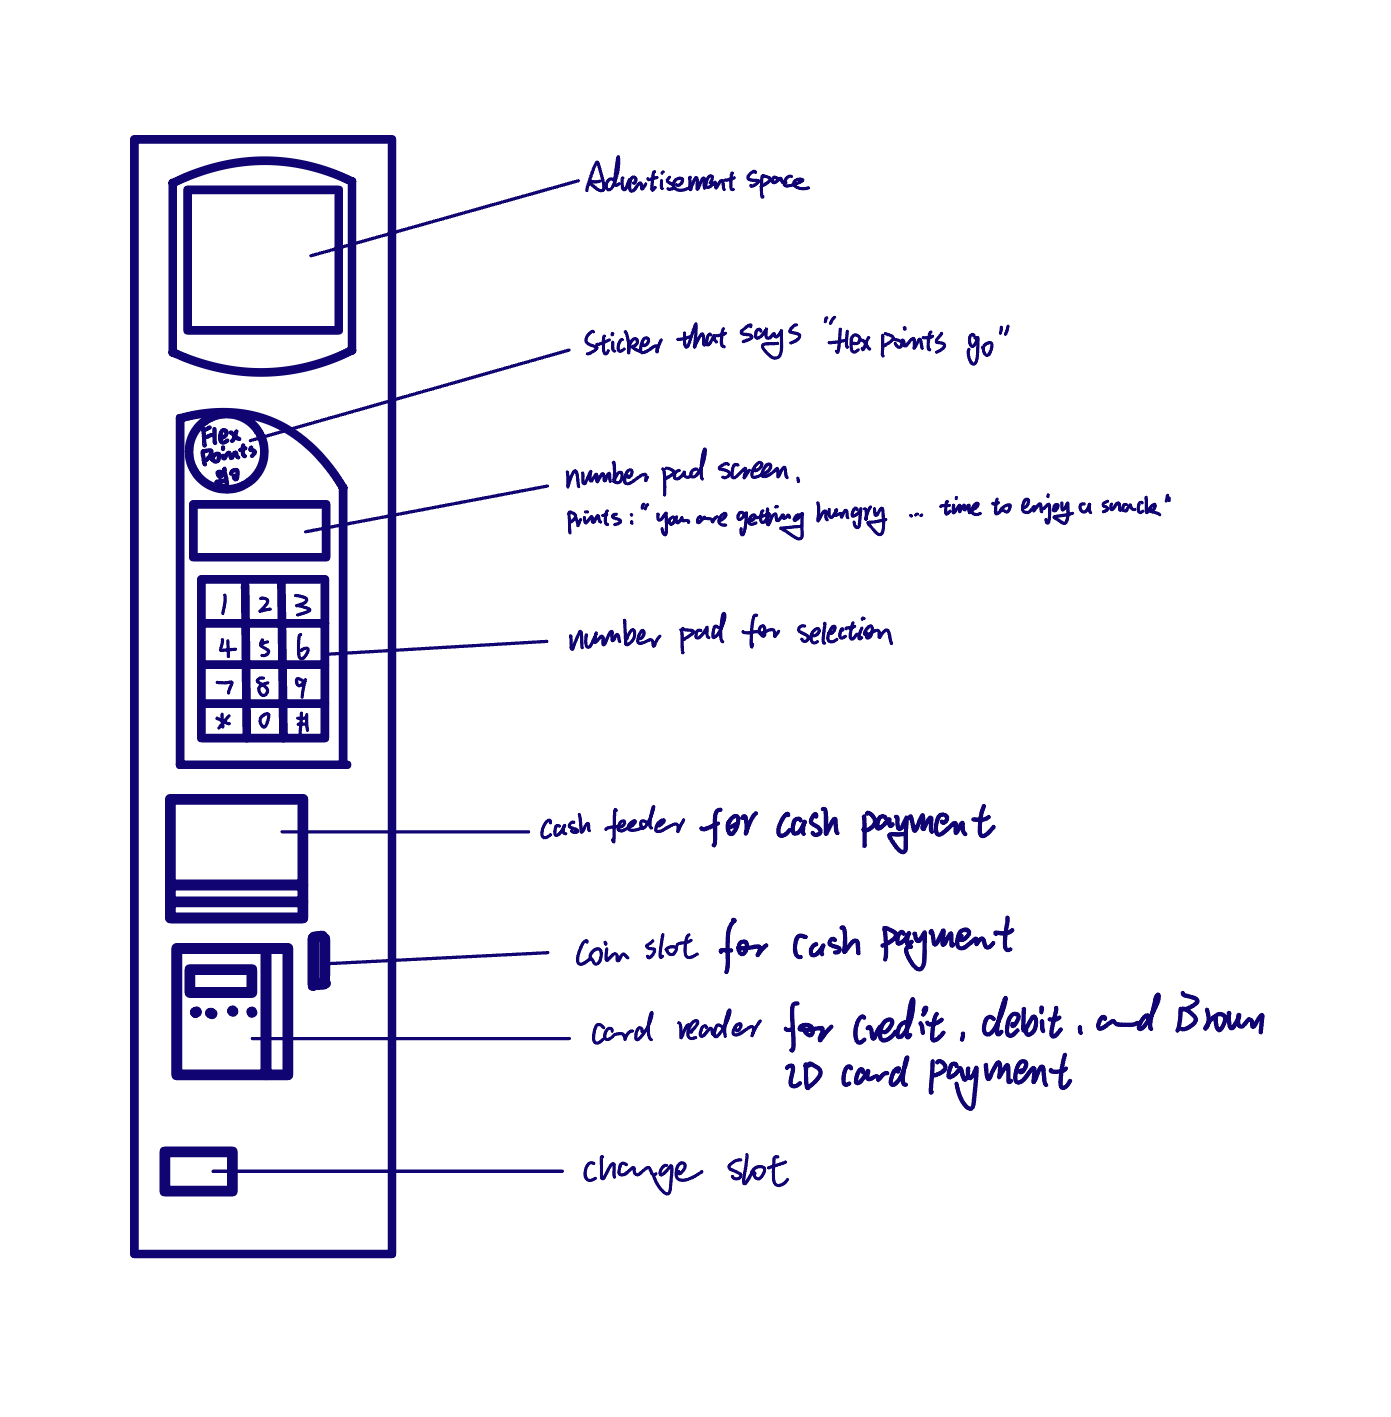 Advertisement space
Sticker that says "flex points go"
Flex
Points
go
number pad screen.
prints: "you are getting hungry ... time to enjoy a snack"
1 2 3
4 5 6
7 8 9
* 0 #
number pad for selection
cash feeder for cash payment
coin slot for cash payment
card reader for credit, debit, and Brown
ID card payment
change slot